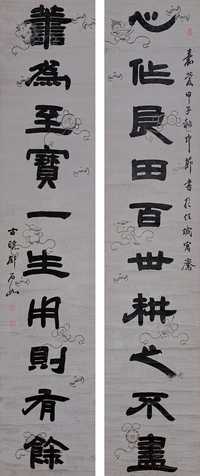 心作良田百世耕之不盡
嘉慶甲子秋中節書於城寓齋
善為至寶一生用則有餘
古皖鄧石如